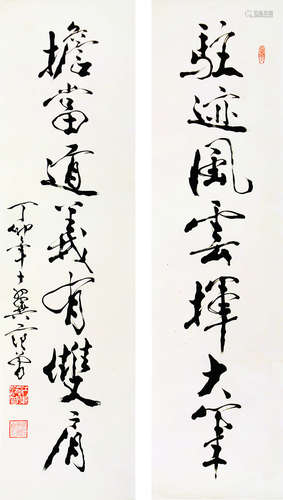 駐迹風雲揮大筆
擔當道義有雙肩
丁卯年十翼范曾